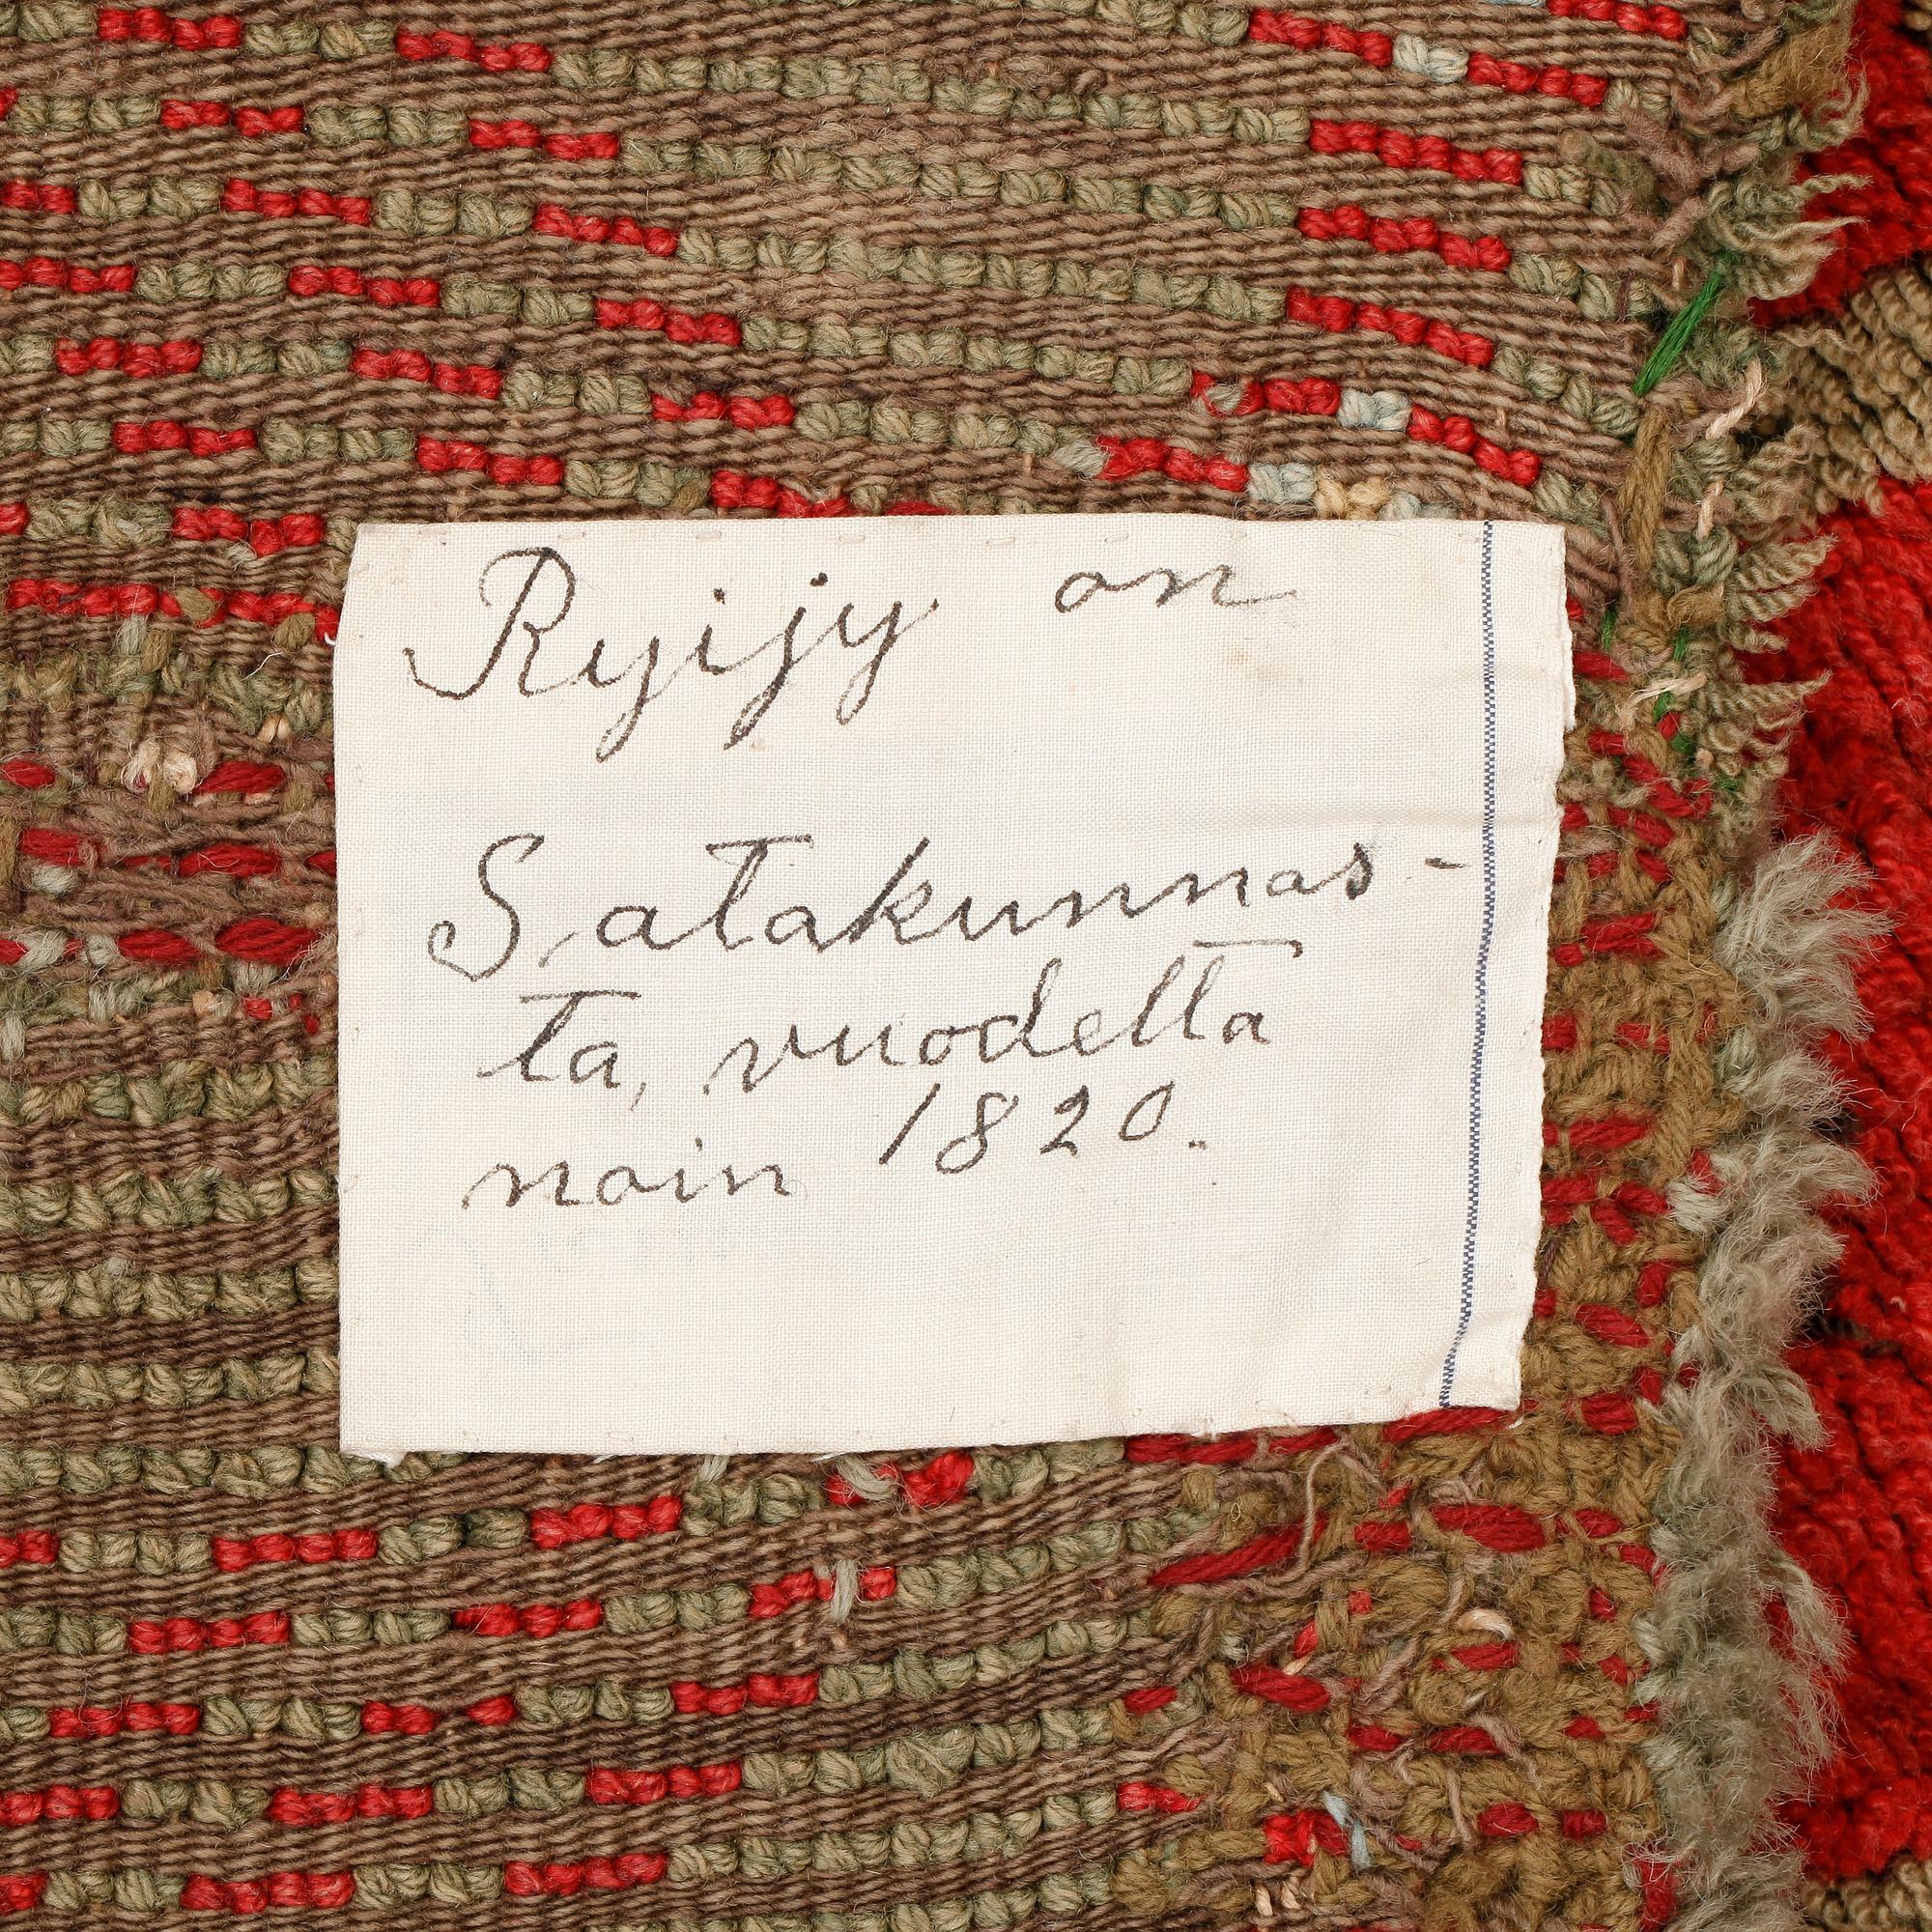 Ryijy on
Satakunnas-
ta, vuodelta
noin 1820.